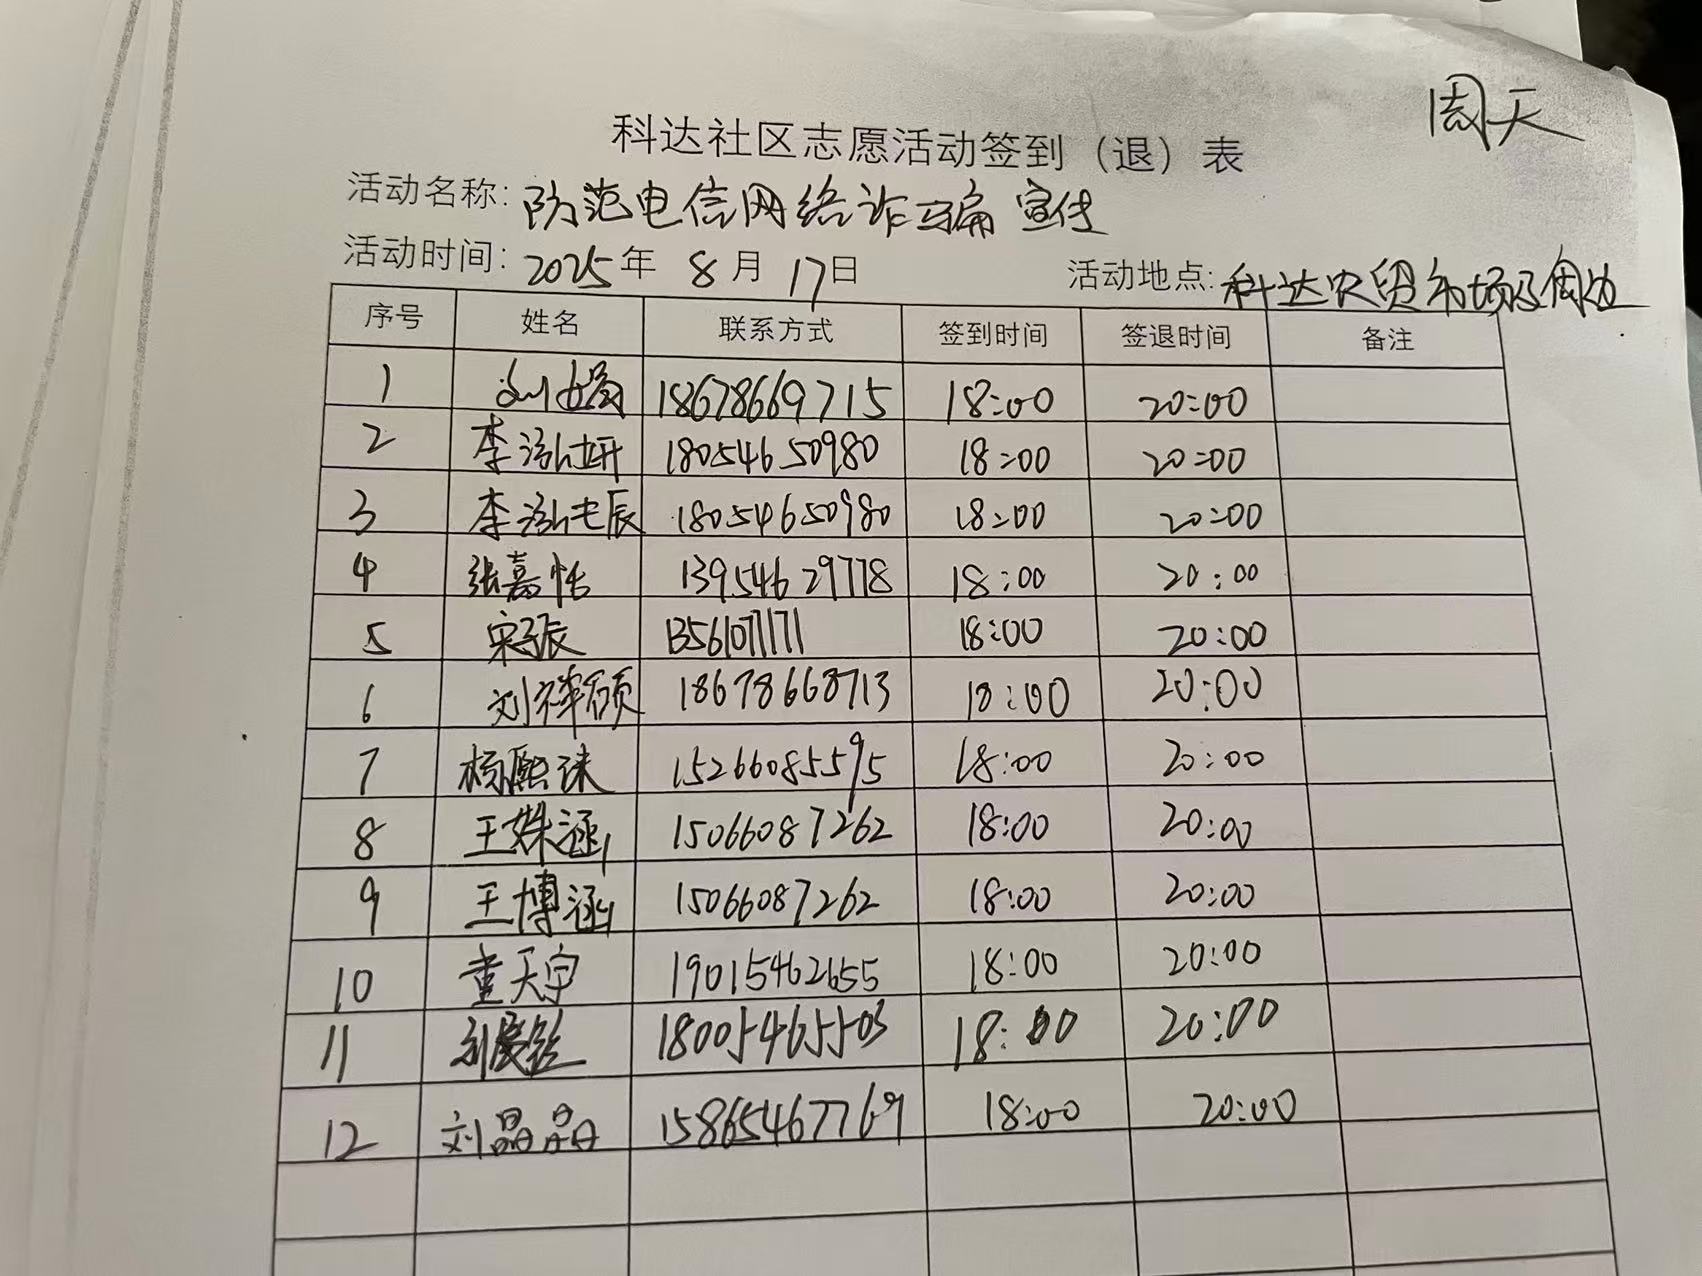 周天
科达社区志愿活动签到（退）表
活动名称: 防范电信网络诈骗宣传
活动时间: 2025年 8月17日 活动地点: 科达农贸市场及周边
序号 姓名 联系方式 签到时间 签退时间 备注
1 刘 18678669715 18:00 20:00
2 李泓妍 18054650980 18:00 20:00
3 李泓 18054650980 18:00 20:00
4 张嘉恬 13954629778 18:00 20:00
5 13561071171 18:00 20:00
6 刘祥硕 18678668713 18:00 20:00
7 杨熙 15266085595 18:00 20:00
8 王姝涵 15066087262 18:00 20:00
9 王博涵 15066087262 18:00 20:00
10 董天宇 19015462655 18:00 20:00
11 18005465503 18:00 20:00
12 刘晶晶 15865467769 18:00 20:00